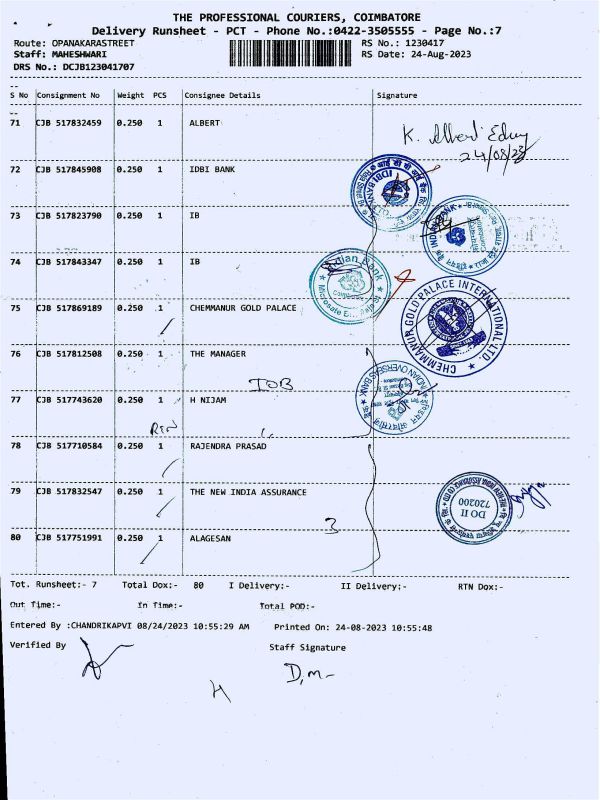 THE PROFESSIONAL COURIERS, COIMBATORE
Delivery Runsheet - PCT - Phone No.:0422-3505555 - Page No.:7
Route: OPANAKARASTREET RS No.: 1230417
Staff: MAHESHWARI RS Date: 24-Aug-2023
DRS No.: DCJB123041707
S No Consignment No Weight PCS Consignee Details Signature
71 CJB 517832459 0.250 1 ALBERT
K. Albert
24/08/23
72 CJB 517845908 0.250 1 IDBI BANK
IDBI BANK
73 CJB 517823790 0.250 1 IB
INDIAN BANK
74 CJB 517843347 0.250 1 IB
Indian Bank
75 CJB 517869189 0.250 1 CHEMMANUR GOLD PALACE
CHEMMANUR GOLD PALACE INTERNATIONAL LTD.
76 CJB 517812508 0.250 1 THE MANAGER
IOB
INDIAN OVERSEAS BANK
77 CJB 517743620 0.250 1 H NIJAM
RTN
78 CJB 517710584 0.250 1 RAJENDRA PRASAD
79 CJB 517832547 0.250 1 THE NEW INDIA ASSURANCE
DO II
720200
3
80 CJB 517751991 0.250 1 ALAGESAN
Tot. Runsheet:- 7 Total Dox:- 80 I Delivery:- II Delivery:- RTN Dox:-
Out Time:- In Time:- Total POD:-
Entered By :CHANDRIKAPVI 08/24/2023 10:55:29 AM Printed On: 24-08-2023 10:55:48
Verified By Staff Signature
D.m-